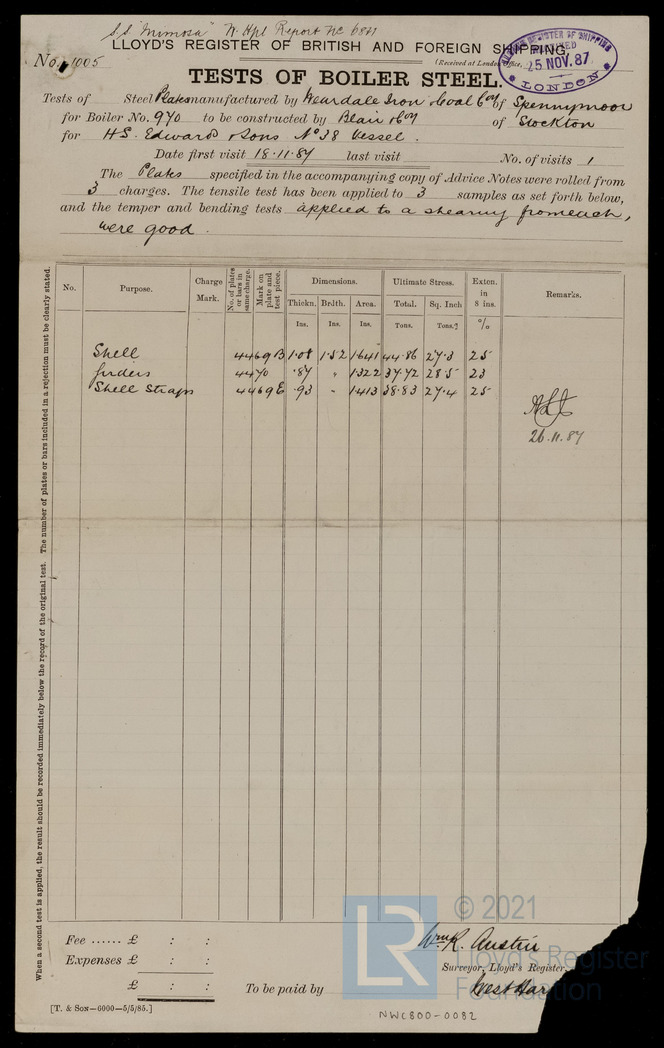 S.S. "Mimosa" W. Hpl Report No
LLOYD'S REGISTER OF BRITISH AND FOREIGN SHIPPING,
No. 1005
(Received at London Office,
LLOYD'S REGISTER OF SHIPPING
RECEIVED
25 NOV. 87
LONDON
TESTS OF BOILER STEEL.
Tests of Steel Plates manufactured by Weardale Iron & Coal Coy of Spennymoor
for Boiler No. 970 to be constructed by Blair & Coy of Stockton
for H.S. Edwards & Sons No 38 Vessel.
Date first visit 18.11.87 last visit No. of visits 1
The Plates specified in the accompanying copy of Advice Notes were rolled from
3 charges. The tensile test has been applied to 3 samples as set forth below,
and the temper and bending tests applied to a shearing from each,
were good.
When a second test is applied, the result should be recorded immediately below the record of the original test. The number of plates or bars included in a rejection must be clearly stated.
No. Purpose. Charge Mark. No. of plates or bars in same charge. Mark on plate and test piece. Dimensions. Ultimate Stress. Exten. in 8 ins. Remarks.
Thickn. Brdth. Area. Total. Sq. Inch
Ins. Ins. Ins. Tons. Tons. %
Shell 4469 B 1.08 1.52 1.641 44.86 27.3 25
Girders 4470 .87 " 1.322 37.72 28.5 23
Shell Straps 4469 E .93 " 1.413 38.83 27.4 25
26.11.87
Fee ...... £ : :
Expenses £ : :
£ : :
To be paid by
Wm R. Austin
Surveyor, Lloyd's Register.
West Har
[T. & Son—6000—5/5/85.]
NWC800-0082
LR
© 2021
Lloyd's Register
Foundation